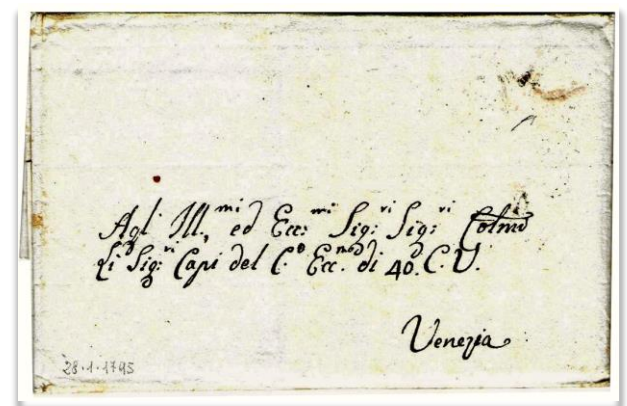 Agl' Ill.mi ed Ecc:mi Sig:ri Sig:ri Colmi
Li Sig:ri Capi del C.o Ecc.mo di 40. C. V.
Venezia
28.1.1795